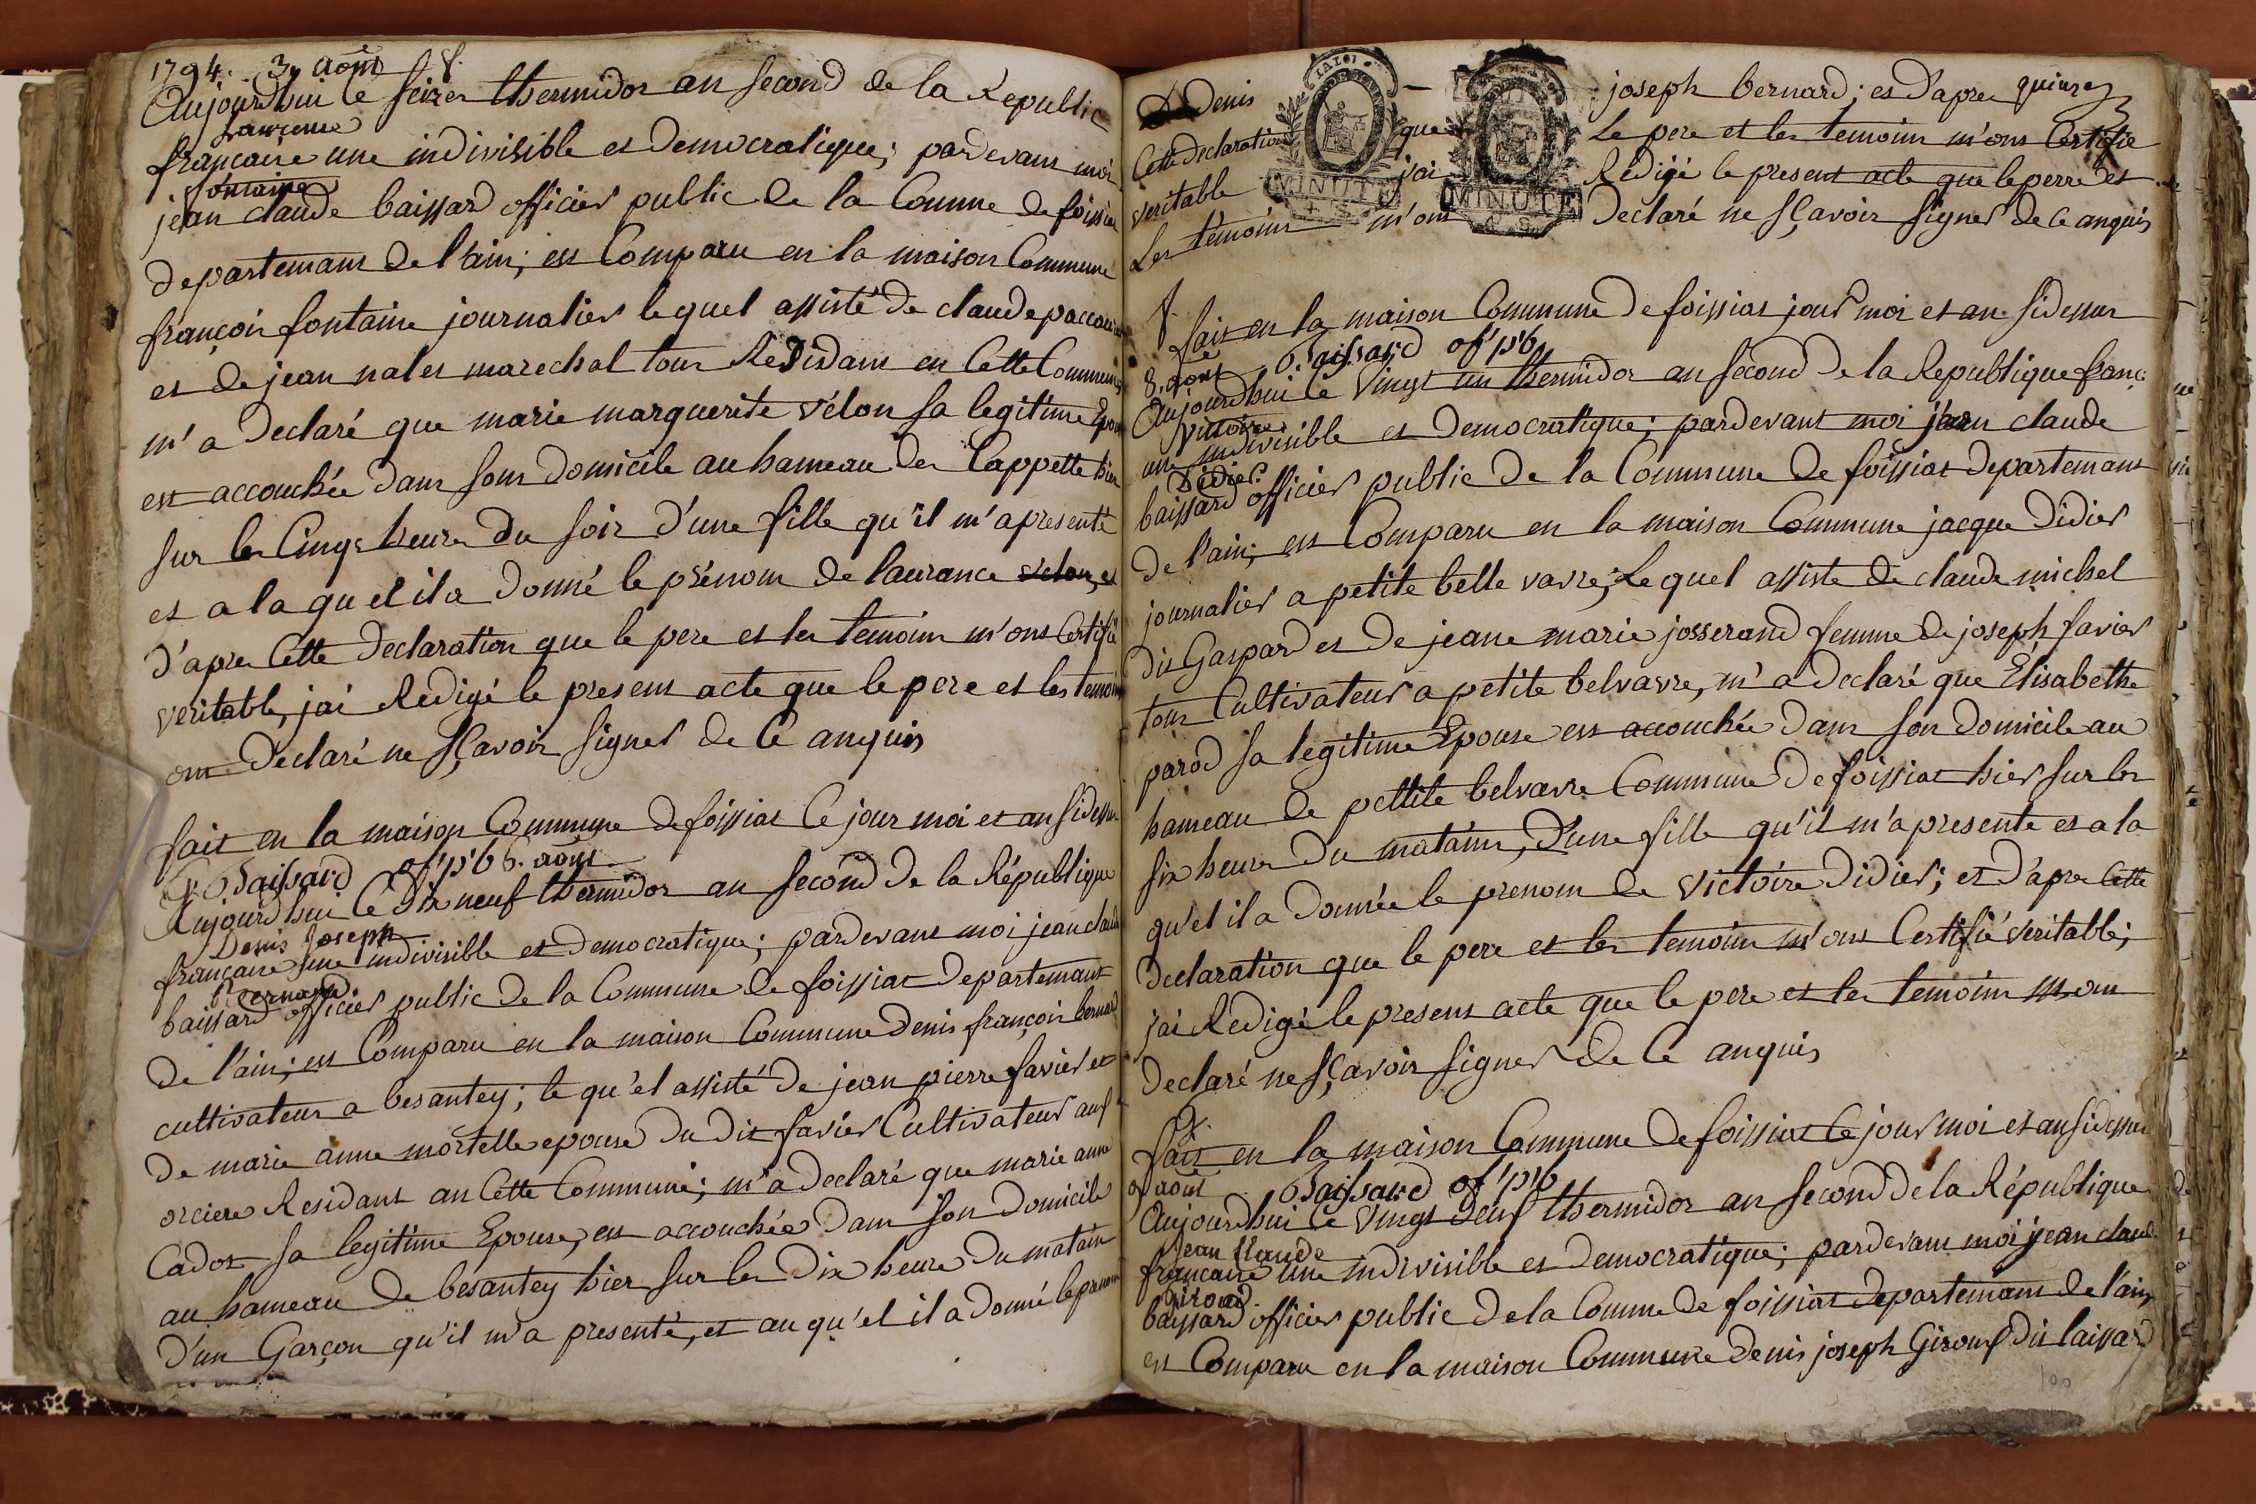 1794. 3. août
Aujourd'hui le seizes thermidor an second de la Republic
françoise
francaire une indivisible et democratique; pardevans moi
fontaine
jean claude baissard officier public de la Comune de foissia
departemans de l'ain; est Comparu en la maison Commune
françois fontaine journalier lequel assisté de claude paccau
et de jean nales marechal tous Residans en Cette Commune
m'a Declaré que marie marguerite vélon sa legitime Epou
est accouchée dans sons domicile au hameau des Cappette hier
sur les Cinqs heures du soir d'une fille qu'il m'apresenté
et a la quel il a donné le prénom de laurance velon, et
d'apres Cette declaration que le pere et les temoins m'ons Certifié
veritable, jai Redigé le presens acte que le pere et les temoin
ons Declaré ne sçavoir signer de Ce anquis
fait en la maison Commune de foissiat Ce jour moi et an sidessu
Baissard of'p'b 6. août
Aujourd'hui Ce Dix neuf thermidor an second de la République
Denis Joseph
française une indivisible et democratique; pardevans moi jean claude
Bernard
baissard officier public de la Commune de foissiat departemant
de l'ain; est Comparu en la maison Commune denis françois bernard
cultivateur a besantey; le qu'el assisté de jean pierre favier et
de marie anne mortelle epouse du dit favier Cultivateur aux
orciere Residant an Cette Commune; m'a declaré que marie anne
Cadot sa legitime Epouse, est accouchée dans son domicile
au hameau de besantey hier sur les dix heure du matain
d'un Garçon qu'il m'a presenté, et au qu'el il a donné le prenom
Denis — joseph bernard; et d'apres quinze
Cette declaration que Le pere et les temoins m'ons Certifié
veritable j'ai Redigé le present acte que le perre et
Les temoins m'ons Declaré ne sçavoir signer de Ce anquis
MINUTE
MINUTE
fait en la maison Commune de foissiat jour moi et an sidessus
8. aout Baissard of'p'b
Aujourd'hui Ce Vingt un thermidor an second de la Republique franç
Victoire
une indivisible et Democratique; pardevant moi jean claude
Didier
baissard officier public de la Commune de foissiat departemans
de l'ain; est Comparu en la maison Commune jacque Didier
journalier a petite belle vavre; Le quel assiste de claude michel
dit Gaspard et de jeane marie josserand femme de joseph favier
tous Cultivateur a petite belvavre, m'a declaré que Élisabethe
parod sa legitime Epouse est accouchée dans son domicile au
hameau de pettite belvavre Commune de foissiat hier sur les
six heures du matain, D'une fille qu'il m'a presente et a la
qu'el il a donnée le prenom de Victoire Didier; et d'apres Cette
declaration que le pere et les temoins m'ons Certifié veritable;
jai Redigé le presens acte que le pere et les temoins m'ons
declaré ne sçavoir signer de Ce anquis
fait en la maison Commune de foissiat Ce jour moi et an sidessus
9 août Baissard of'p'b
Aujourd'hui Ce vingt deuf thermidor an second de la République
Jean Claude
françaire une indivisible et democratique; pardevans moi jean claude
Giroud.
baissard officier public de la Comme de foissiat departemans de l'ain,
est Comparu en la maison Commune denis joseph Giroud dit laissard
100